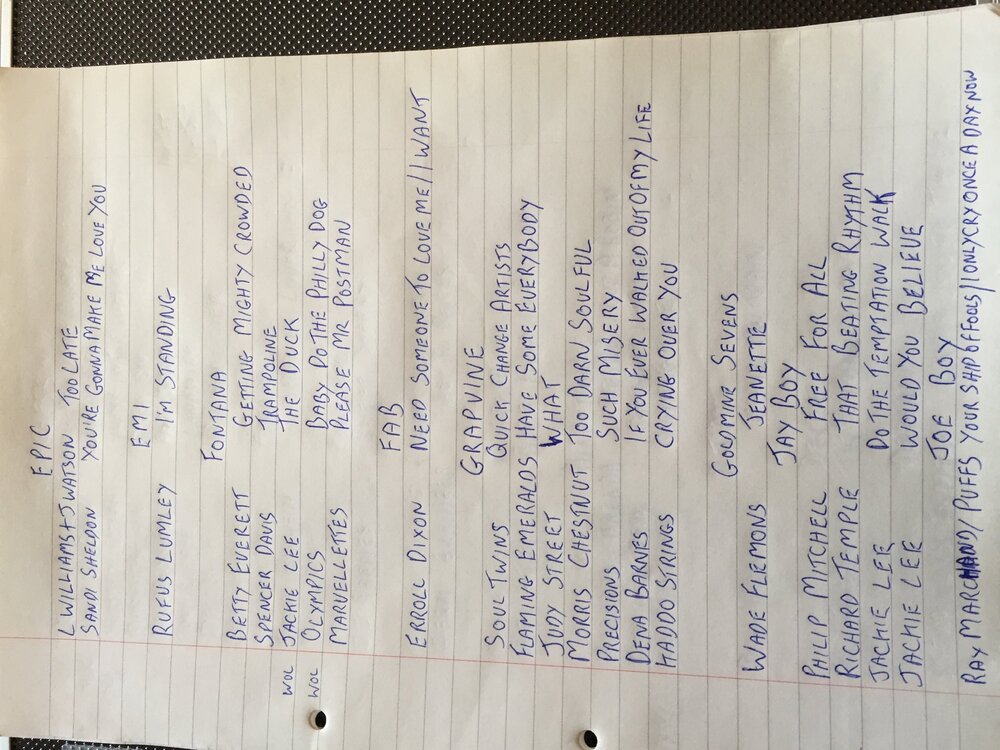 EPIC
L WILLIAMS + J WATSON TOO LATE
SANDI SHELDON YOU'RE GONNA MAKE ME LOVE YOU
EMI
RUFUS LUMLEY I'M STANDING
FONTANA
BETTY EVERETT GETTING MIGHTY CROWDED
SPENCER DAVIS TRAMPOLINE
WOL JACKIE LEE THE DUCK
WOL OLYMPICS BABY DO THE PHILLY DOG
MARVELLETTES PLEASE MR POSTMAN
FAB
ERROLL DIXON NEED SOMEONE TO LOVE ME // I WANT
GRAPVINE
SOUL TWINS QUICK CHANGE ARTISTS
FLAMING EMERALDS HAVE SOME EVERYBODY
JUDY STREET WHAT
MORRIS CHESTNUT TOO DARN SOULFUL
PRECISIONS SUCH MISERY
DENA BARNES IF YOU EVER WALHED OUT OF MY LIFE
HADDO STRINGS CRYING OVER YOU
GOLDMINE SEVENS
WADE FLEMONS JEANETTE
JAY BOY
PHILIP MITCHELL FREE FOR ALL
RICHARD TEMPLE THAT BEATING RHYTHM
JACKIE LEE DO THE TEMPTATION WALK
JACKIE LEE WOULD YOU BELIEVE
JOE BOY
RAY MARCHAND / PUFFS YOUR SHIP OF FOOLS // I ONLY CRY ONCE A DAY NOW